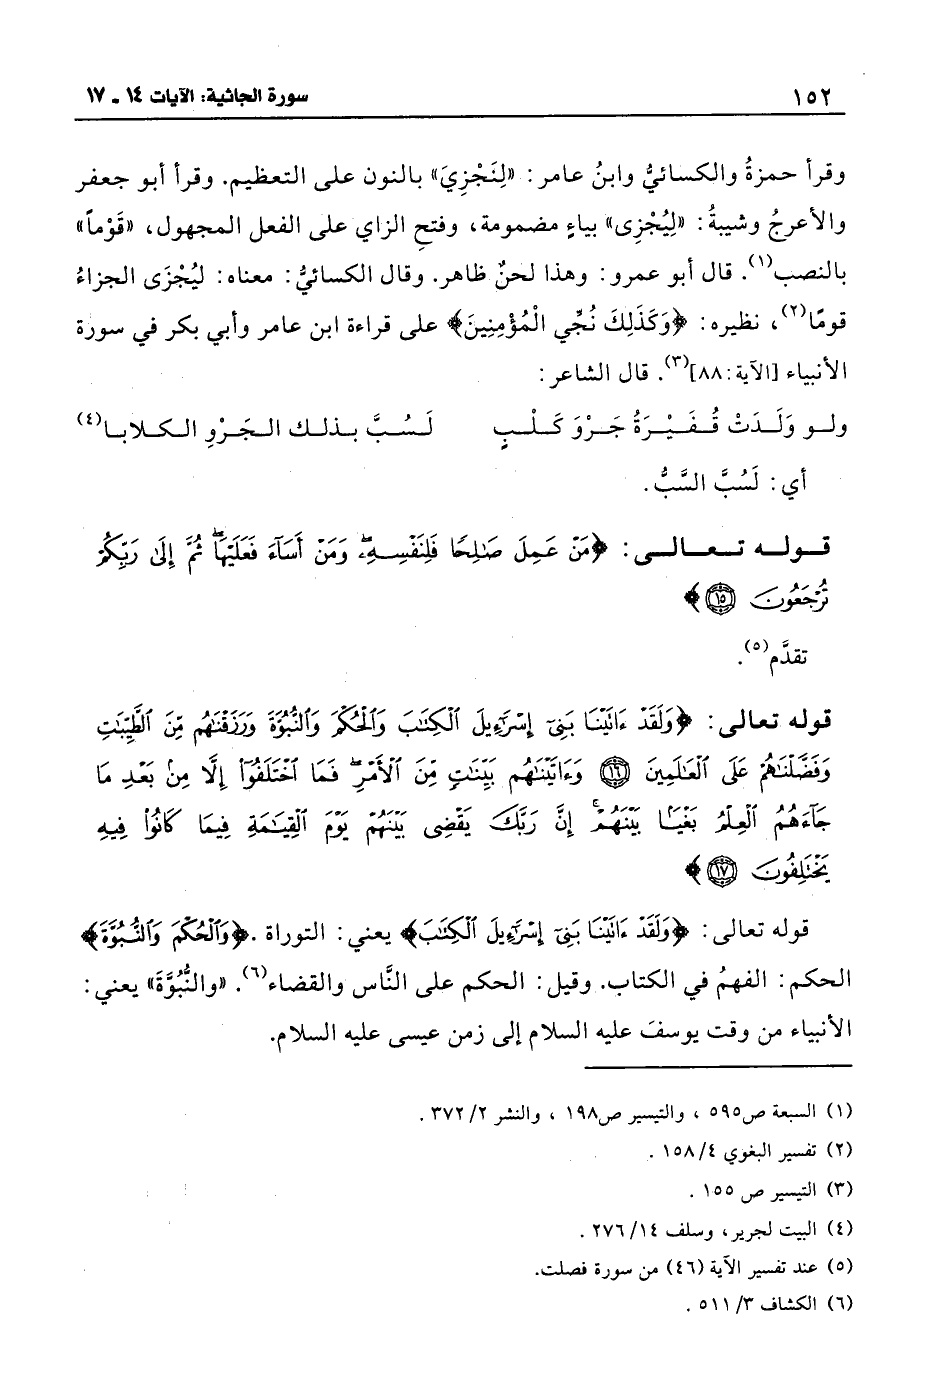 ١٥٢
سورة الجاثية: الآيات ١٤ - ١٧
وقرأ حمزةُ والكسائيُّ وابنُ عامر: «لِنَجْزِيَ» بالنون على التعظيم. وقرأ أبو جعفر
والأعرجُ وشيبةُ: «لِيُجْزِى» بياءٍ مضمومة، وفتحِ الزاي على الفعل المجهول، «قَوْماً»
بالنصب(١). قال أبو عمرو: وهذا لحنٌ ظاهر. وقال الكسائيُّ: معناه: ليُجْزَى الجزاءُ
قومًا(٢)، نظيره: ﴿وَكَذَلِكَ نُجِّي الْمُؤْمِنِينَ﴾ على قراءة ابن عامر وأبي بكر في سورة
الأنبياء [الآية: ٨٨](٣). قال الشاعر:
ولو وَلَدَتْ قُفَيْرَةُ جَرْوَ كَلْبٍ لَسُبَّ بذلك الجَرْوِ الكلابا(٤)
أي: لَسُبَّ السَّبُّ.
قوله تعالى: ﴿مَنْ عَمِلَ صَٰلِحًا فَلِنَفْسِهِۦۖ وَمَنْ أَسَآءَ فَعَلَيْهَاۖ ثُمَّ إِلَىٰ رَبِّكُمْ
تُرْجَعُونَ ١٥﴾
تقدَّم(٥).
قوله تعالى: ﴿وَلَقَدْ ءَاتَيْنَا بَنِىٓ إِسْرَٰٓءِيلَ ٱلْكِتَٰبَ وَٱلْحُكْمَ وَٱلنُّبُوَّةَ وَرَزَقْنَٰهُم مِّنَ ٱلطَّيِّبَٰتِ
وَفَضَّلْنَٰهُمْ عَلَى ٱلْعَٰلَمِينَ ١٦ وَءَاتَيْنَٰهُم بَيِّنَٰتٍ مِّنَ ٱلْأَمْرِۖ فَمَا ٱخْتَلَفُوٓا۟ إِلَّا مِنۢ بَعْدِ مَا
جَآءَهُمُ ٱلْعِلْمُ بَغْيًۢا بَيْنَهُمْۚ إِنَّ رَبَّكَ يَقْضِى بَيْنَهُمْ يَوْمَ ٱلْقِيَٰمَةِ فِيمَا كَانُوا۟ فِيهِ
يَخْتَلِفُونَ ١٧﴾
قوله تعالى: ﴿وَلَقَدْ ءَاتَيْنَا بَنِىٓ إِسْرَٰٓءِيلَ ٱلْكِتَٰبَ﴾ يعني: التوراة. ﴿وَٱلْحُكْمَ وَٱلنُّبُوَّةَ﴾
الحكم: الفهمُ في الكتاب. وقيل: الحكم على النَّاس والقضاء(٦). «والنُّبُوَّةَ» يعني:
الأنبياء من وقت يوسفَ عليه السلام إلى زمن عيسى عليه السلام.
(١) السبعة ص٥٩٥ ، والتيسير ص١٩٨ ، والنشر ٣٧٢/٢ .
(٢) تفسير البغوي ١٥٨/٤ .
(٣) التيسير ص ١٥٥ .
(٤) البيت لجرير، وسلف ٢٧٦/١٤ .
(٥) عند تفسير الآية (٤٦) من سورة فصلت.
(٦) الكشاف ٥١١/٣ .